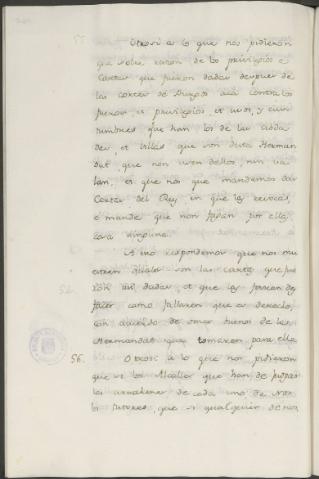 Otrosi a lo que nos pidieron
que sobre razon de los privilegios e
Cartas que fueron dadas despues de
las cortes de Burgos acá contra los
fueros, et privilegios, et usos, y cus
tumbres, que han los de las cibda
des, et Villas que son desta Herman
dat, que non usen dellos, nin va
lan, et que nos que mandemos dar
Cartas del Rey, en que les revoca,
e mande que non fagan por ella
cosa ninguna.
A esto respondemos que nos mu
estren quales son las cartas que fue
ron asi dadas, et que las faremos des
facer como fallaren que es derecho,
con acuerdo de omes buenos de las
Hermandat que tomaren para ello
56. Otrosi a lo que nos pidieron
que si los Alcalles que han de judgar
las
de cada uno de nos
los tutores, que si qualquier de nos